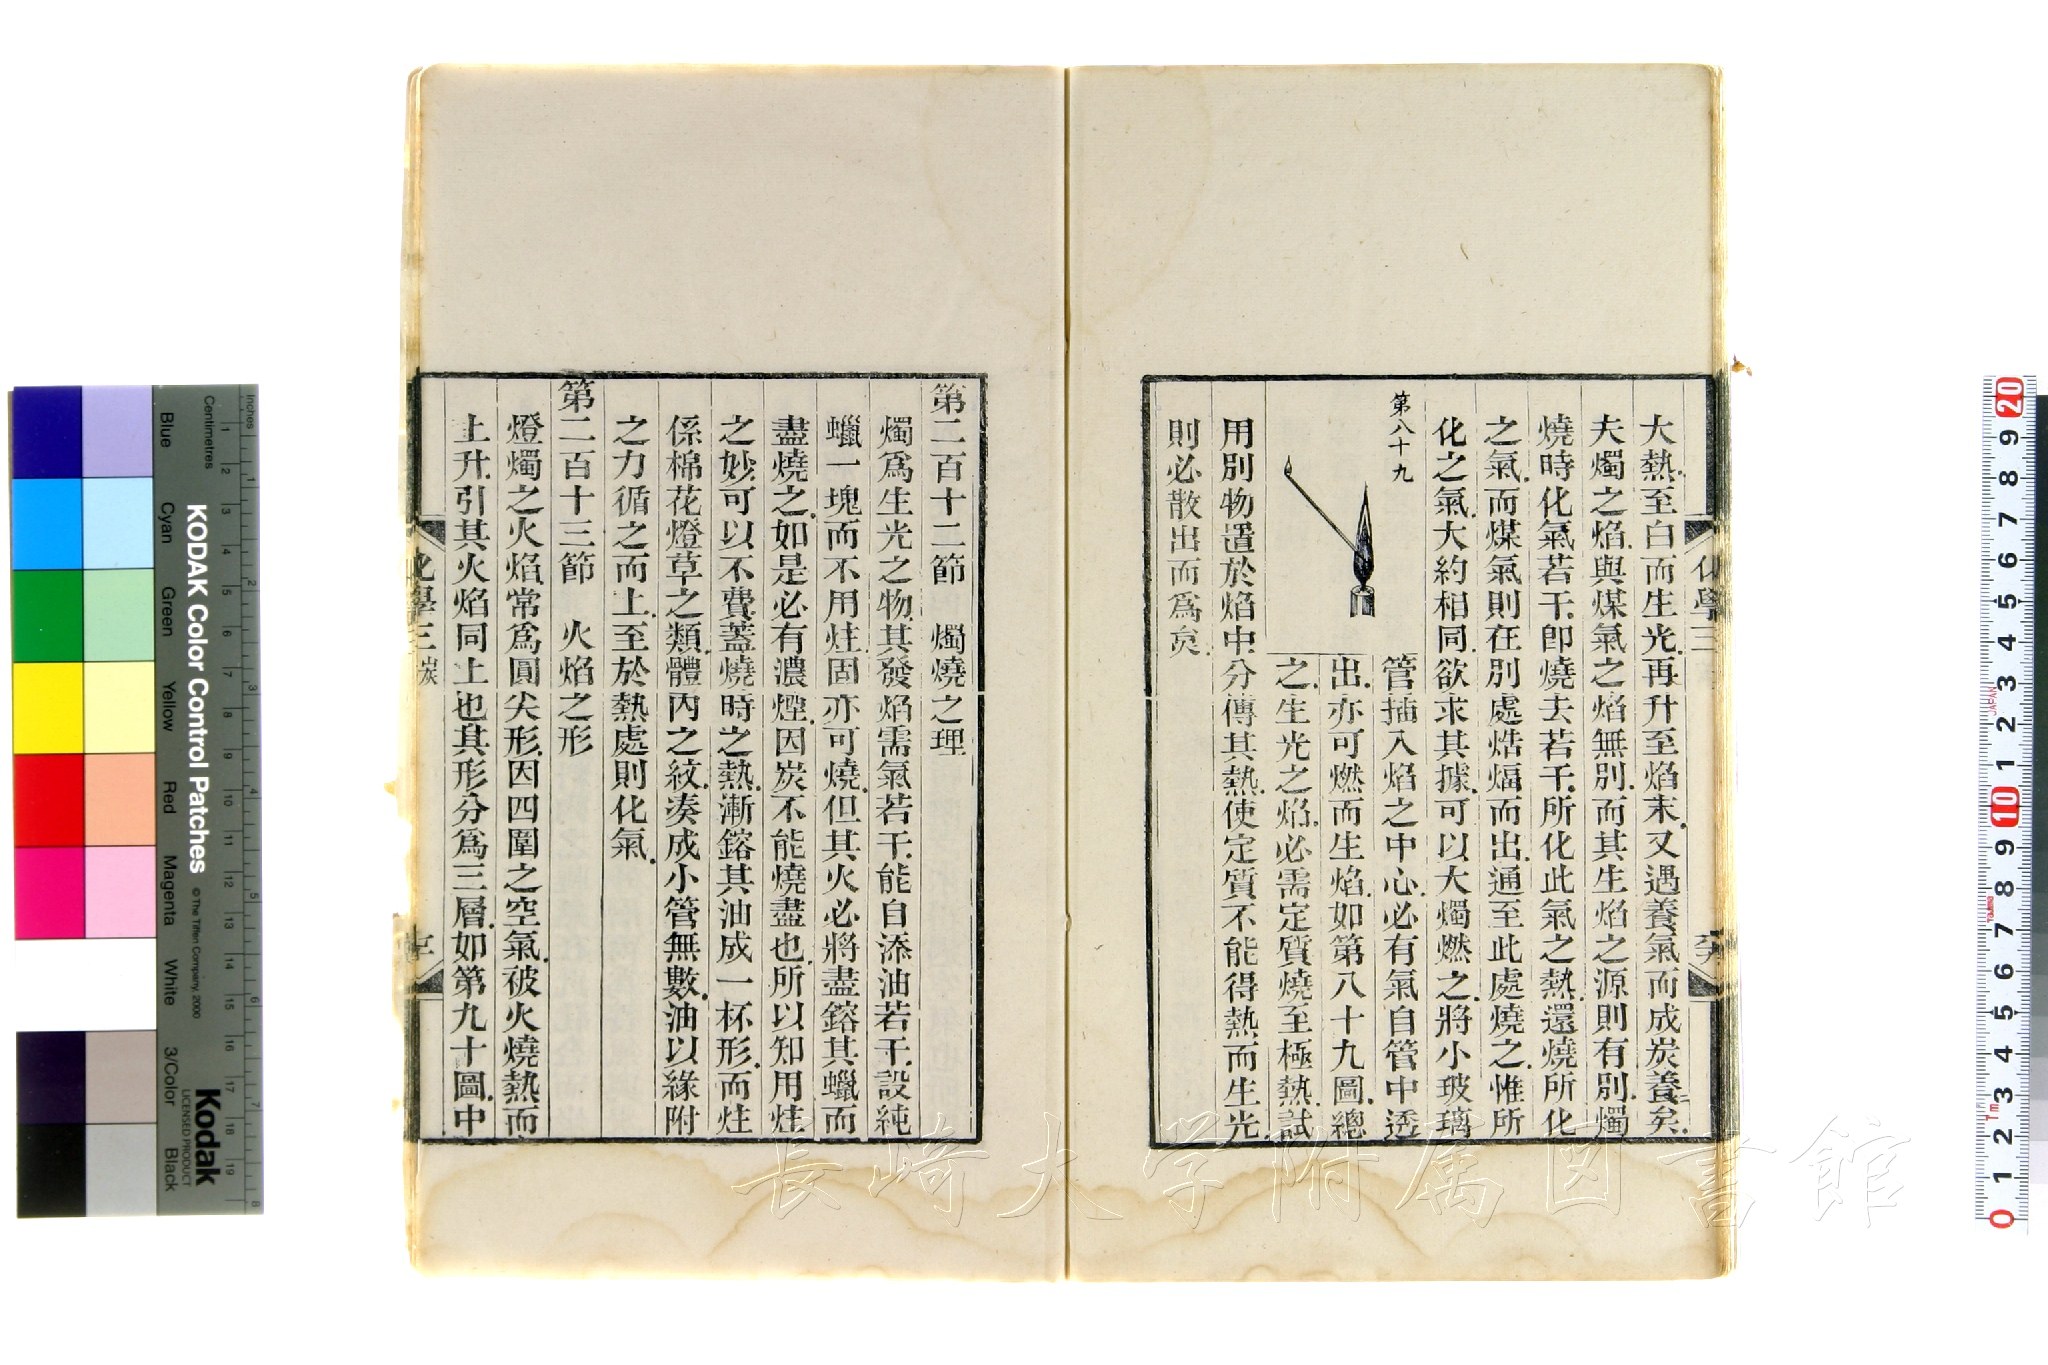 大熱.至白而生光.再升至焰末.又遇養氣而成炭養二矣.
夫燭之焰.與煤氣之焰無別.而其生焰之源則有別.燭
燒時化氣若干.卽燒去若干.所化此氣之熱.還燒所化
之氣.而煤氣則在別處焅煏而出.通至此處燒之.惟所
化之氣.大約相同.欲求其據.可以大燭燃之.將小玻璃
第八十九
管插入焰之中心.必有氣自管中透
出.亦可燃而生焰.如第八十九圖.總
之.生光之焰.必需定質燒至極熱.試
用別物置於焰中.分傳其熱.使定質不能得熱.而生光
則必散出而爲炱.
化學三
第二百十二節 燭燒之理
燭爲生光之物.其發焰需氣若干.能自添油若干.設純
蠟一塊而不用炷.固亦可燒.但其火必將盡鎔其蠟而
盡燒之.如是必有濃煙.因炭不能燒盡也.所以知用炷
之妙.可以不費.蓋燒時之熱.漸鎔其油成一杯形.而炷
係棉花燈草之類.體內之紋.湊成小管無數.油以緣附
之力循之而上.至於熱處則化氣.
第二百十三節 火焰之形
燈燭之火焰.常爲圓尖形.因四圍之空氣.被火燒熱而
上升.引其火焰同上也.其形分爲三層.如第九十圖.中
化學三 炭
KODAK Color Control Patches
© The Tiffen Company, 2000
Kodak
LICENSED PRODUCT
Inches
Centimetres
Blue
Cyan
Green
Yellow
Red
Magenta
White
3/Color
Black
長崎大学附属図書館
JAPAN